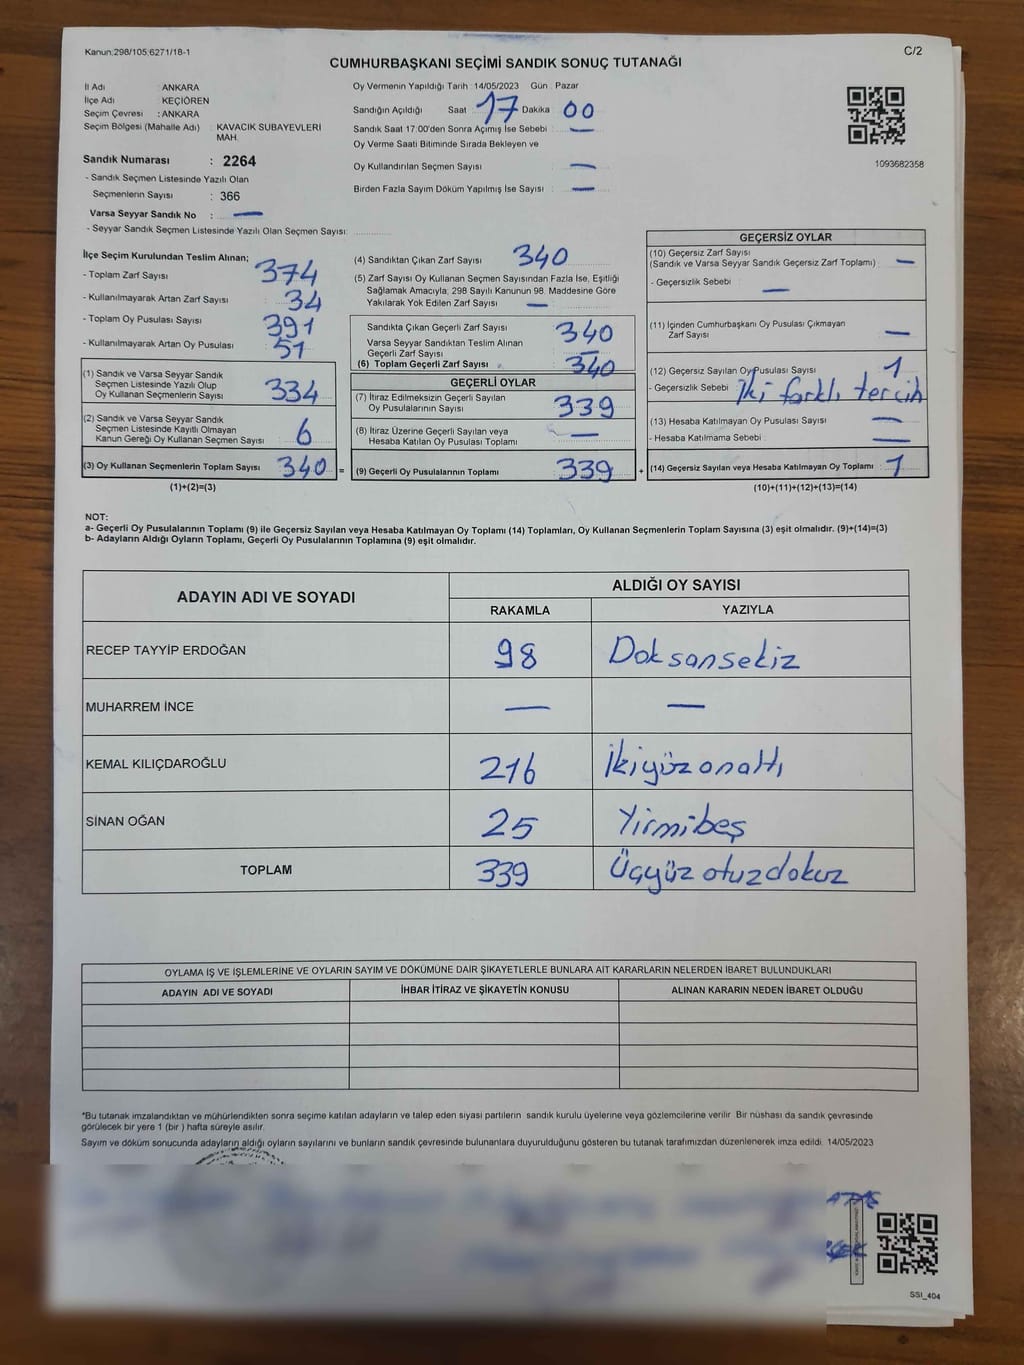 Kanun:298/105,6271/18-1
C/2
CUMHURBAŞKANI SEÇİMİ SANDIK SONUÇ TUTANAĞI
İl Adı : ANKARA
İlçe Adı : KEÇİÖREN
Seçim Çevresi : ANKARA
Seçim Bölgesi (Mahalle Adı) : KAVACIK SUBAYEVLERİ MAH.
Sandık Numarası : 2264
- Sandık Seçmen Listesinde Yazılı Olan
Seçmenlerin Sayısı : 366
Varsa Seyyar Sandık No : —
- Seyyar Sandık Seçmen Listesinde Yazılı Olan Seçmen Sayısı:
Oy Vermenin Yapıldığı Tarih : 14/05/2023 Gün : Pazar
Sandığın Açıldığı Saat 17 Dakika 00
Sandık Saat 17:00'den Sonra Açımış İse Sebebi : —
Oy Verme Saati Bitiminde Sırada Bekleyen ve
Oy Kullandırılan Seçmen Sayısı : —
Birden Fazla Sayım Döküm Yapılmış İse Sayısı : —
1093682358
İlçe Seçim Kurulundan Teslim Alınan;
- Toplam Zarf Sayısı : 374
- Kullanılmayarak Artan Zarf Sayısı : 34
- Toplam Oy Pusulası Sayısı : 391
- Kullanılmayarak Artan Oy Pusulası : 51
(1) Sandık ve Varsa Seyyar Sandık
Seçmen Listesinde Yazılı Olup
Oy Kullanan Seçmenlerin Sayısı : 334
(2) Sandık ve Varsa Seyyar Sandık
Seçmen Listesinde Kayıtlı Olmayan
Kanun Gereği Oy Kullanan Seçmen Sayısı : 6
(3) Oy Kullanan Seçmenlerin Toplam Sayısı : 340 =
(1)+(2)=(3)
(4) Sandıktan Çıkan Zarf Sayısı : 340
(5) Zarf Sayısı Oy Kullanan Seçmen Sayısından Fazla İse, Eşitliği
Sağlamak Amacıyla; 298 Sayılı Kanunun 98. Maddesine Göre
Yakılarak Yok Edilen Zarf Sayısı : —
Sandıkta Çıkan Geçerli Zarf Sayısı : 340
Varsa Seyyar Sandıktan Teslim Alınan
Geçerli Zarf Sayısı : —
(6) Toplam Geçerli Zarf Sayısı : 340
GEÇERLİ OYLAR
(7) İtiraz Edilmeksizin Geçerli Sayılan
Oy Pusulalarının Sayısı : 339
(8) İtiraz Üzerine Geçerli Sayılan veya
Hesaba Katılan Oy Pusulası Toplamı : —
(9) Geçerli Oy Pusulalarının Toplamı : 339 +
GEÇERSİZ OYLAR
(10) Geçersiz Zarf Sayısı
(Sandık ve Varsa Seyyar Sandık Geçersiz Zarf Toplamı) : —
- Geçersizlik Sebebi : —
(11) İçinden Cumhurbaşkanı Oy Pusulası Çıkmayan
Zarf Sayısı : —
(12) Geçersiz Sayılan Oy Pusulası Sayısı : 1
- Geçersizlik Sebebi : İki farklı tercih
(13) Hesaba Katılmayan Oy Pusulası Sayısı : —
- Hesaba Katılmama Sebebi : —
(14) Geçersiz Sayılan veya Hesaba Katılmayan Oy Toplamı : 1
(10)+(11)+(12)+(13)=(14)
NOT:
a- Geçerli Oy Pusulalarının Toplamı (9) ile Geçersiz Sayılan veya Hesaba Katılmayan Oy Toplamı (14) Toplamları, Oy Kullanan Seçmenlerin Toplam Sayısına (3) eşit olmalıdır. (9)+(14)=(3)
b- Adayların Aldığı Oyların Toplamı, Geçerli Oy Pusulalarının Toplamına (9) eşit olmalıdır.
ADAYIN ADI VE SOYADI
ALDIĞI OY SAYISI
RAKAMLA YAZIYLA
RECEP TAYYİP ERDOĞAN 98 Doksansekiz
MUHARREM İNCE — —
KEMAL KILIÇDAROĞLU 216 İkiyüzonaltı
SİNAN OĞAN 25 Yirmibeş
TOPLAM 339 Üçyüzotuzdokuz
OYLAMA İŞ VE İŞLEMLERİNE VE OYLARIN SAYIM VE DÖKÜMÜNE DAİR ŞİKAYETLERLE BUNLARA AİT KARARLARIN NELERDEN İBARET BULUNDUKLARI
ADAYIN ADI VE SOYADI İHBAR İTİRAZ VE ŞİKAYETİN KONUSU ALINAN KARARIN NEDEN İBARET OLDUĞU
*Bu tutanak imzalandıktan ve mühürlendikten sonra seçime katılan adayların ve talep eden siyasi partilerin sandık kurulu üyelerine veya gözlemcilerine verilir. Bir nüshası da sandık çevresinde
görülecek bir yere 1 (bir ) hafta süreyle asılır.
Sayım ve döküm sonucunda adayların aldığı oyların sayılarını ve bunların sandık çevresinde bulunanlara duyurulduğunu gösteren bu tutanak tarafımızdan düzenlenerek imza edildi. 14/05/2023
SSI_404